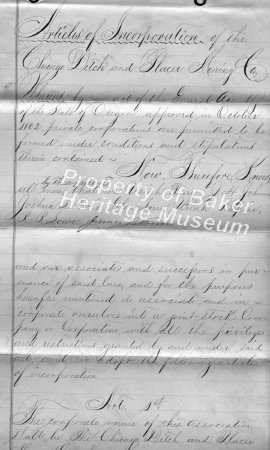 Articles of Incorporation of the
Chicago Ditch and Placer Mining Co
Whereas by an act of the General Assembly
of the State of Oregon approved in October
1862 private corporations are permitted to be
formed under conditions and stipulations
therein contained
Now, Therefore, Know
all by these
Joshua
Property of Baker
Heritage Museum
and our associates and successors in pur
suance of said law, and for the purposes
hereafter mentioned do associate and in-
corporate ourselves into a joint stock Com
pany or Corporation with all the privileges
and restrictions granted by and under said
act and we adopt the following article
of incorporation
Art. 1st
The corporate name of this Association
shall be The Chicago Ditch and Placer